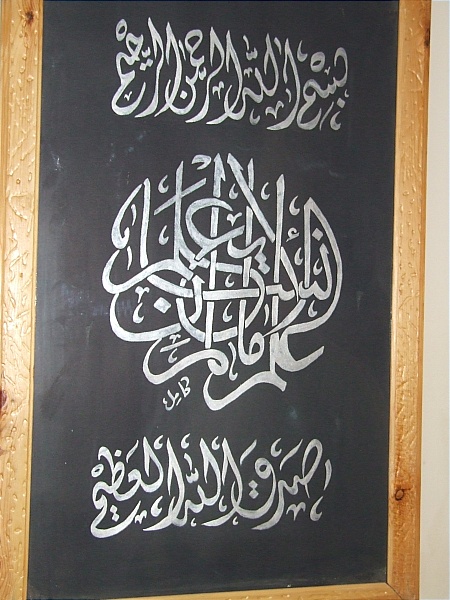 بسم الله الرحمن الرحيم
علم الإنسان ما لم يعلم
كامل
صدق الله العظيم